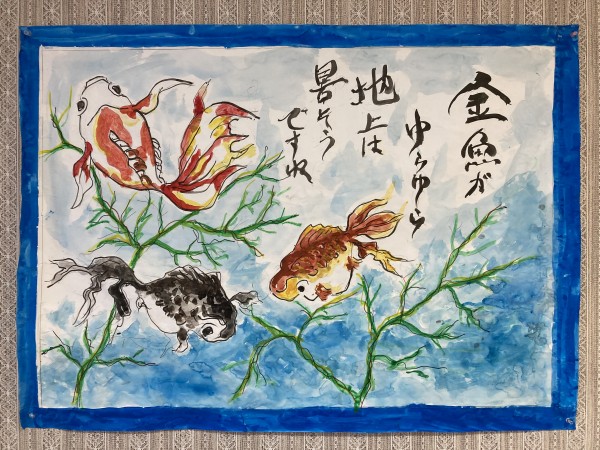 金魚が
ゆらゆら
地上は
暑そう
ですね